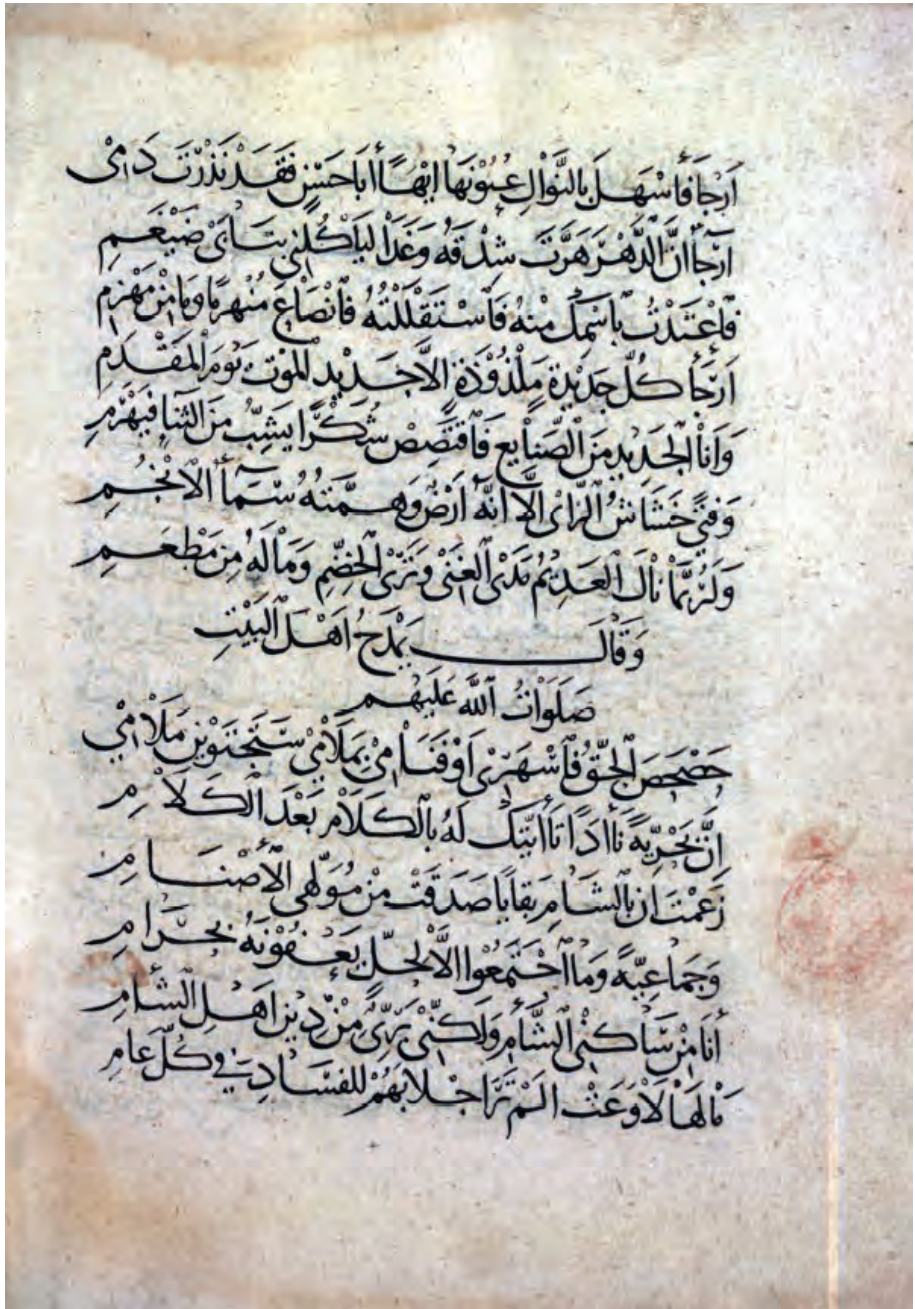 اَرجَا فَاسْهَلَ بالنَّوَالِ عُيُوْنَهَا اِيْهًا أَبَا حَسَنٍ فَقَدْ نَذَرْتَ دَمِىْ
اَرجَأ انَّ الدَّهْرَ هَرَّتَ شِدْقَهُ وَغَدَا لياَكُلَنِى بنَابَىْ ضَيْغَمِ
فاعْتَذْتُ باسْمِكَ مِنْهُ فَاسْتَقْلَلْتُهُ فَانْصَاعَ مُنْهَزِمًا وَمَا مِنْ مَهْزَمِ
اَرجَأ كُلّ جَدِيْدةٍ مَلْذُوْذَةٍ الاَّ جَدِيْد الموْت يَوْمَ المَقْدَمِ
وَانَا الجَدِيد مِنَ الصَّنايع فَاقْتَصِصْ شُكْرًا يَشِبّ مِنَ الثنا فيَهْرَمِ
وَفتًى خَشَاشُ الرَّاىِ الاَّ انَّهُ اَرْضٌ وَهِمَّتهُ سَمَآءُ الاَنْجُمِ
وَلَرُبَّمَا نَالَ العَدِيْمُ يَدَى الغِنَى وَتَرَى الخِضَمَّ وَمَا لَهُ مِنْ مَطْعَمِ
وَقَالَ يَمْدَحُ اَهْلَ البَيْتِ
صَلَوَاتُ اللَّه عَلَيْهِم
حَصْحَصَ الحَقُّ فَاسْهَرِى اَوْ فَنَامِىْ بمَلَامِىْ سَتَجْتَوِيْنَ مَلَامِىْ
اِنَّ بَحْرِيَّةً نَأَادًا نَأَاتِيْكَ لَهُ بالكَلَامِ بَعْدَ الكَلَامِ
زَعَمْتَ ان بالشَامِ بَقَايَا صَدَقَتْ مِنْ مُوَلّهِى الاَصْنَامِ
وَجَمَاعِيَّة وَمَا اجْتَمَعُوا الاَّ لِحِلٍّ يَعْفُوْنَهُ بحَرَامِ
أنَا مِنْ سَاكِنى الشَّأمِ وَلَكِنّى بَرِىٌّ مِنْ دِيْنِ اهْلِ الشأمِ
مَا لَهَا لاَ وَعَتْ اَلَم تَرَ اجْلابَهُمْ للفَسَادِ فى كُلّ عَامِ